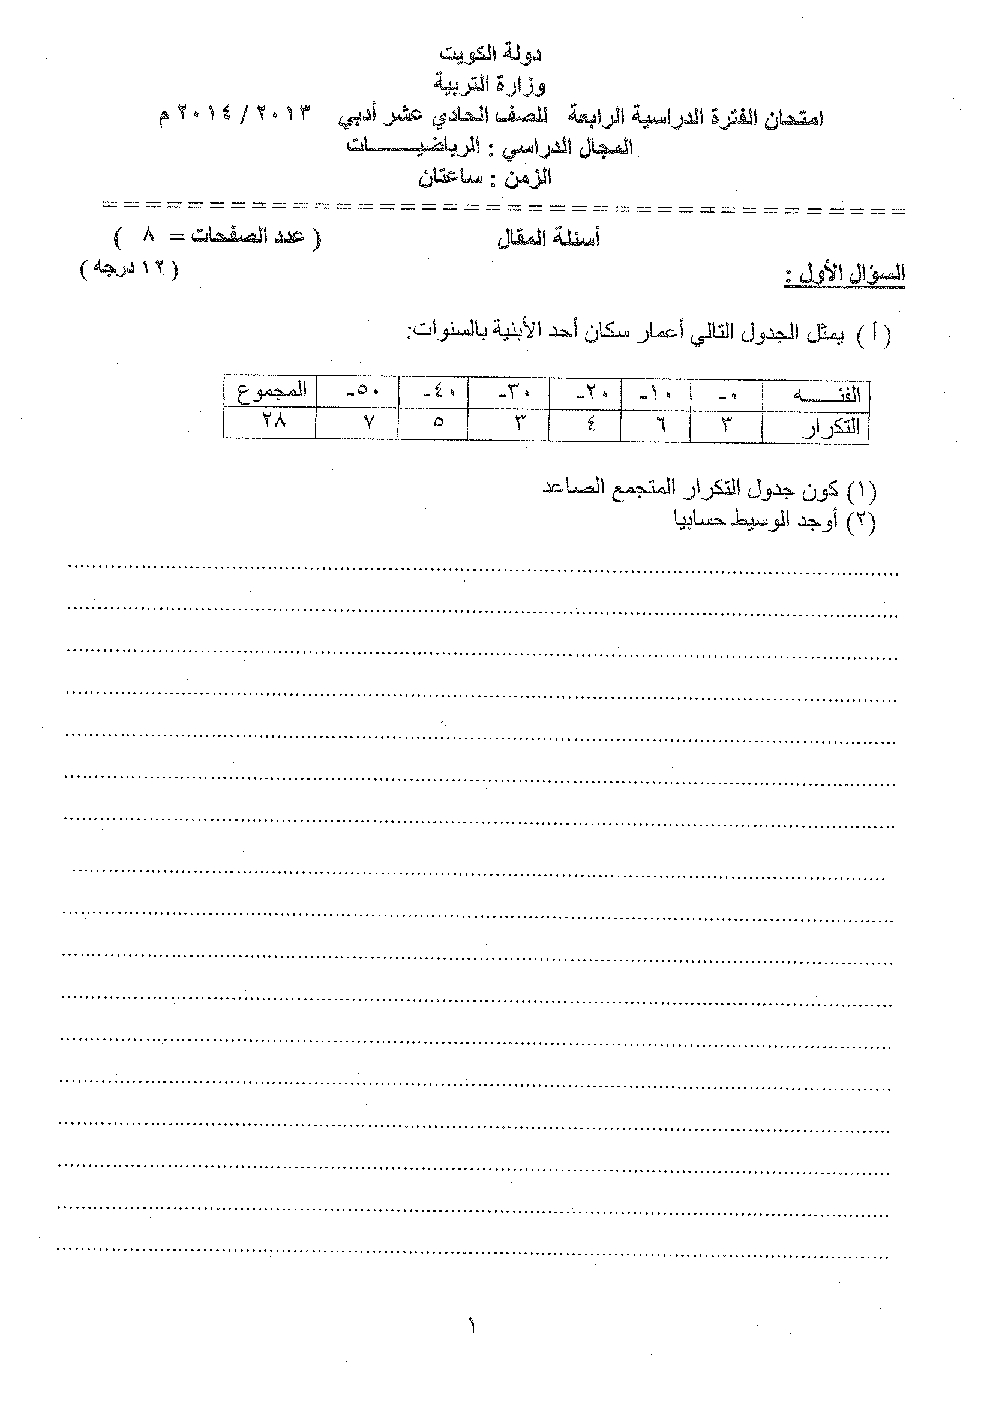 دولة الكويت
وزارة التربية
امتحان الفترة الدراسية الرابعة للصف الحادي عشر أدبي ٢٠١٣ / ٢٠١٤ م
المجال الدراسي : الرياضيـــــات
الزمن : ساعتان
أسئلة المقال ( عدد الصفحات = ٨ )
السؤال الأول : ( ١٢ درجه )
( أ ) يمثل الجدول التالي أعمار سكان أحد الأبنية بالسنوات:
الفئـــــه ٠- ١٠- ٢٠- ٣٠- ٤٠- ٥٠- المجموع
التكرار ٣ ٦ ٤ ٣ ٥ ٧ ٢٨
(١) كون جدول التكرار المتجمع الصاعد
(٢) أوجد الوسيط حسابيا
١